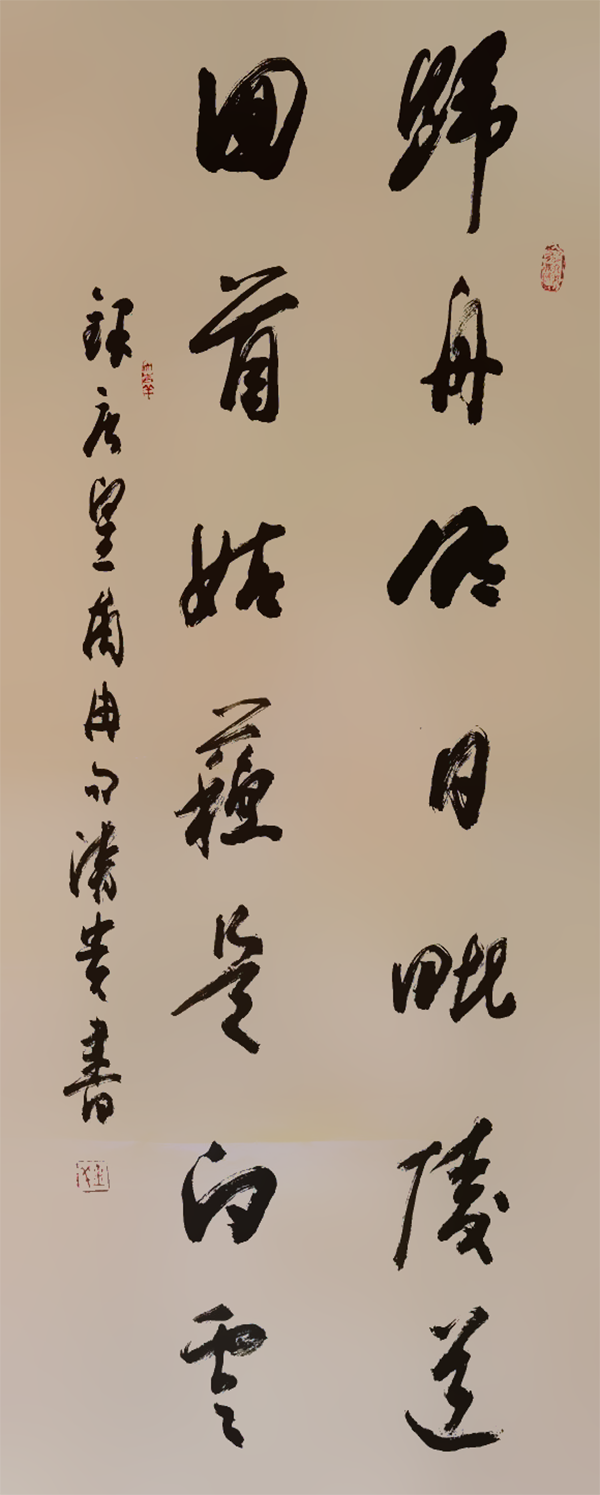 歸舟明日毗陵道
回首姑蘇是白雲
録唐皇甫冉句 書